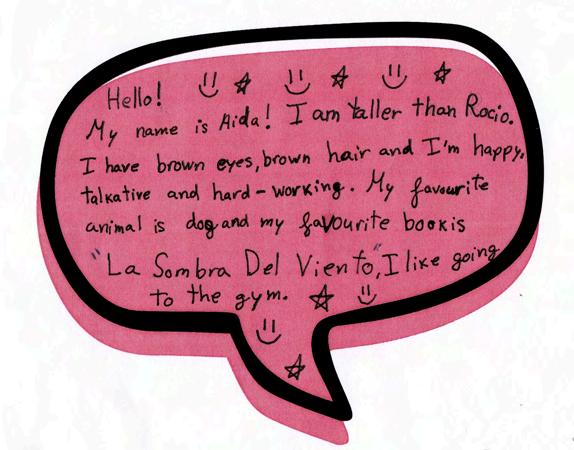 Hello!
My name is Aida! I am taller than Rocio.
I have brown eyes, brown hair and I'm happy,
talkative and hard-working. My favourite
animal is dog and my favourite book is
"La Sombra Del Viento", I like going
to the gym.